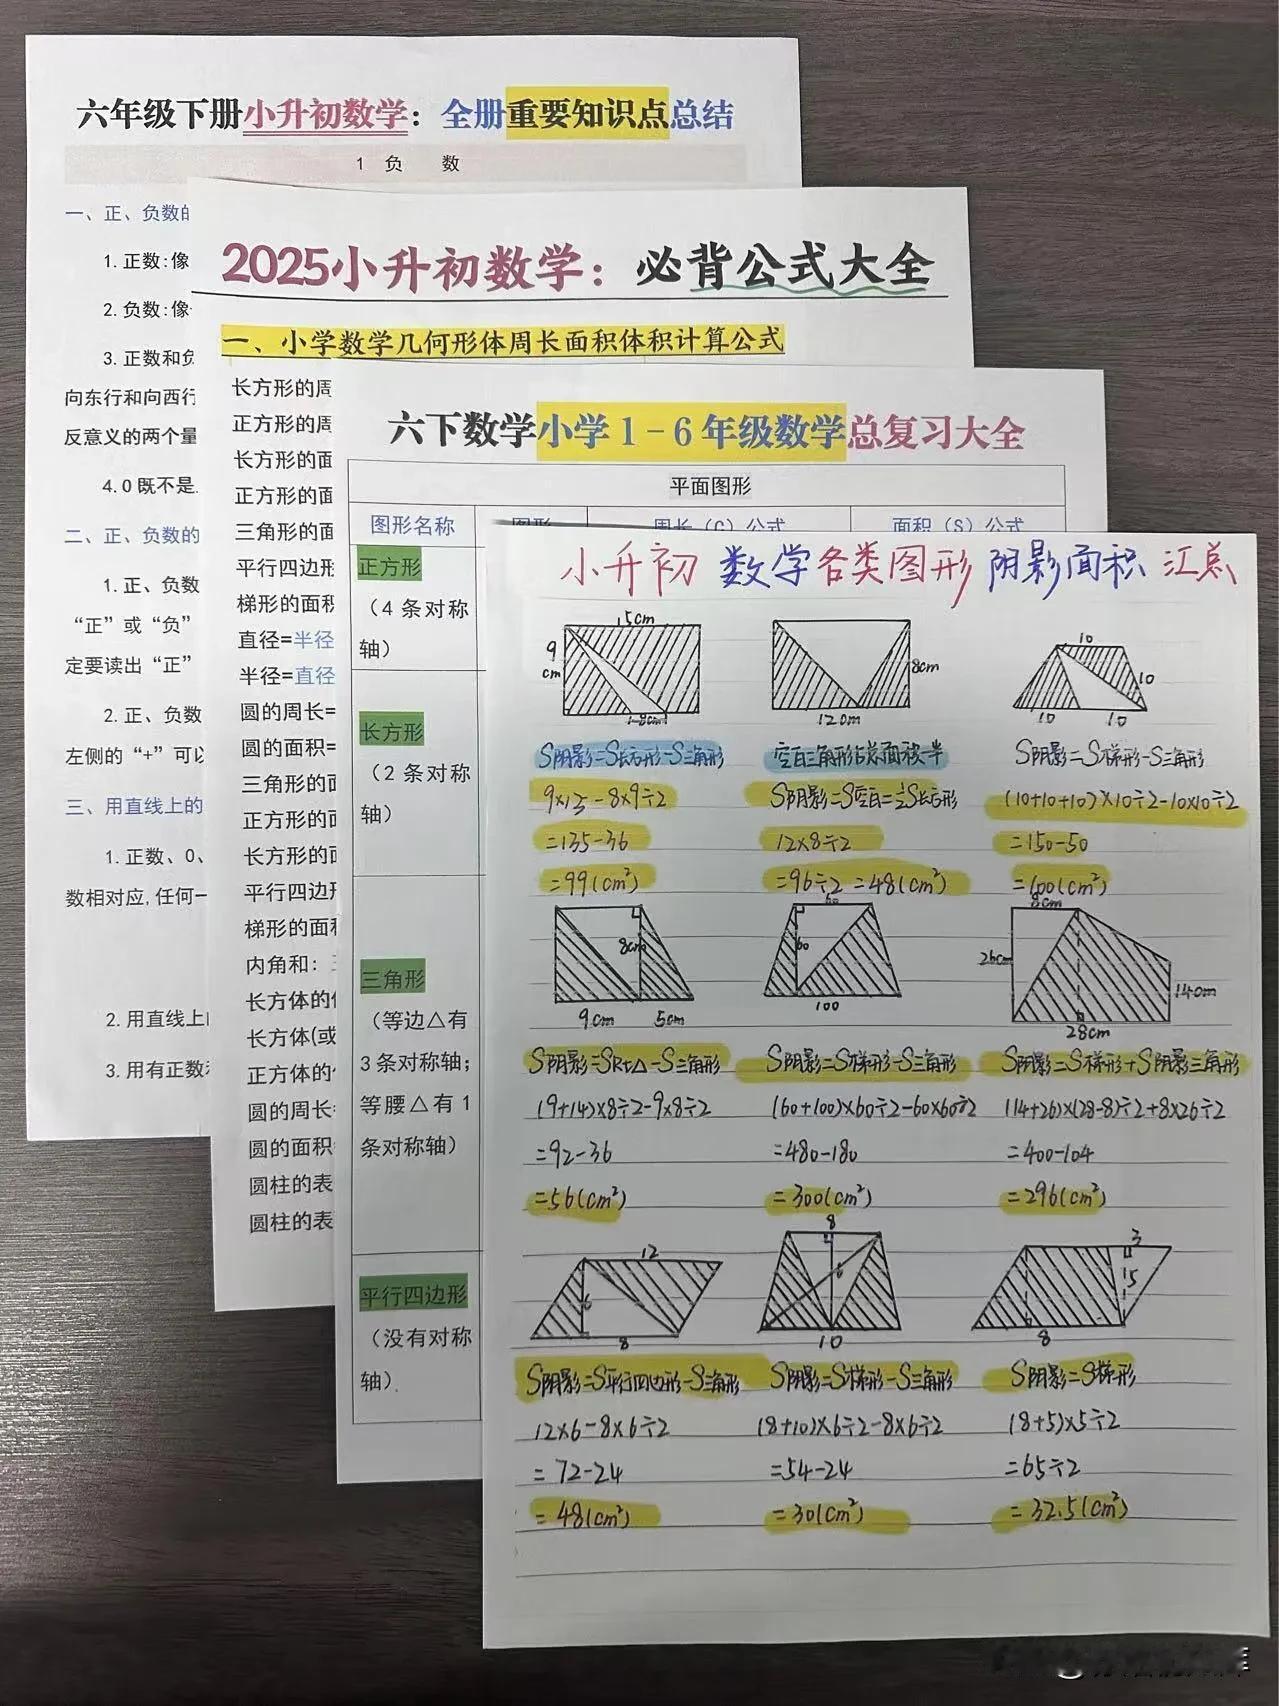 六年级下册小升初数学：全册重要知识点总结
1 负 数
一、正、负数的
1.正数:像
2.负数:像
3.正数和负
向东行和向西行
反意义的两个量
4.0既不是
二、正、负数的
1.正、负数
“正”或“负”
定要读出“正”
2.正、负数
左侧的“+”可以
三、用直线上的
1.正数、0、
数相对应,任何一
2.用直线上
3.用有正数
2025小升初数学：必背公式大全
一、小学数学几何形体周长面积体积计算公式
长方形的周
正方形的周
长方形的面
正方形的面
三角形的面
平行四边形
梯形的面积
直径=半径
半径=直径
圆的周长=
圆的面积=
三角形的面
正方形的面
长方形的面
平行四边形
梯形的面积
内角和：
长方体的
长方体(或
正方体的
圆的周长
圆的面积
圆柱的表
圆柱的表
六下数学小学1-6年级数学总复习大全
平面图形
图形名称 图形 周长（C）公式 面积（S）公式
正方形
（4条对称
轴）
长方形
（2条对称
轴）
三角形
（等边△有
3条对称轴；
等腰△有1
条对称轴）
平行四边形
（没有对称
轴）
小升初 数学各类图形 阴影面积 汇总
15cm
9
cm
8cm
8cm
12cm
10
10
10 10
S阴影=S长方形-S三角形
9×15-8×9÷2
=135-36
=99(cm²)
空白三角形占总面积一半
S阴影=S空白=½S长方形
12×8÷2
=96÷2=48(cm²)
S阴影=S梯形-S三角形
(10+10+10)×10÷2-10×10÷2
=150-50
=100(cm²)
8cm
9cm 5cm
60
60
100
8cm
26cm
14cm
28cm
S阴影=SRt△-S三角形
(9+14)×8÷2-9×8÷2
=92-36
=56(cm²)
S阴影=S梯形-S三角形
(60+100)×60÷2-60×60÷2
=480-180
=300(cm²)
S阴影=S梯形+S阴影三角形
(14+26)×(28-8)÷2+8×26÷2
=400-104
=296(cm²)
12
6
8
8
6
10
3
5
8
S阴影=S平行四边形-S三角形
12×6-8×6÷2
=72-24
=48(cm²)
S阴影=S梯形-S三角形
(8+10)×6÷2-8×6÷2
=54-24
=30(cm²)
S阴影=S梯形
(8+5)×5÷2
=65÷2
=32.5(cm²)